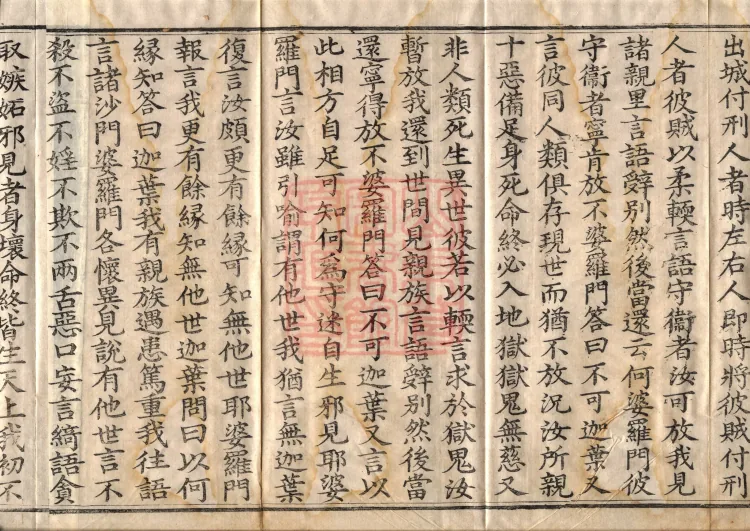 出城付刑人者時左右人即時將彼賊付刑
人者彼賊以柔輭言語守衞者汝可放我見
諸親里言語辭別然後當還云何婆羅門彼
守衞者寧肯放不婆羅門答曰不可迦葉又
言彼同人類俱存現世而猶不放況汝所親
十惡備足身死命終必入地獄獄鬼無慈又
非人類死生異世彼若以輭言求於獄鬼汝
暫放我還到世間見親族言語辭別然後當
還寧得放不婆羅門答曰不可迦葉又言以
此相方自足可知何爲守迷自生邪見耶婆
羅門言汝雖引喻謂有他世我猶言無迦葉
復言汝頗更有餘緣可知無他世耶婆羅門
報言我更有餘緣知無他世迦葉問曰以何
緣知答曰迦葉我有親族遇患篤重我往語
言諸沙門婆羅門各懷異見說有他世言不
殺不盜不婬不欺不兩舌惡口妄言綺語貪
取嫉妬邪見者身壞命終皆生天上我初不